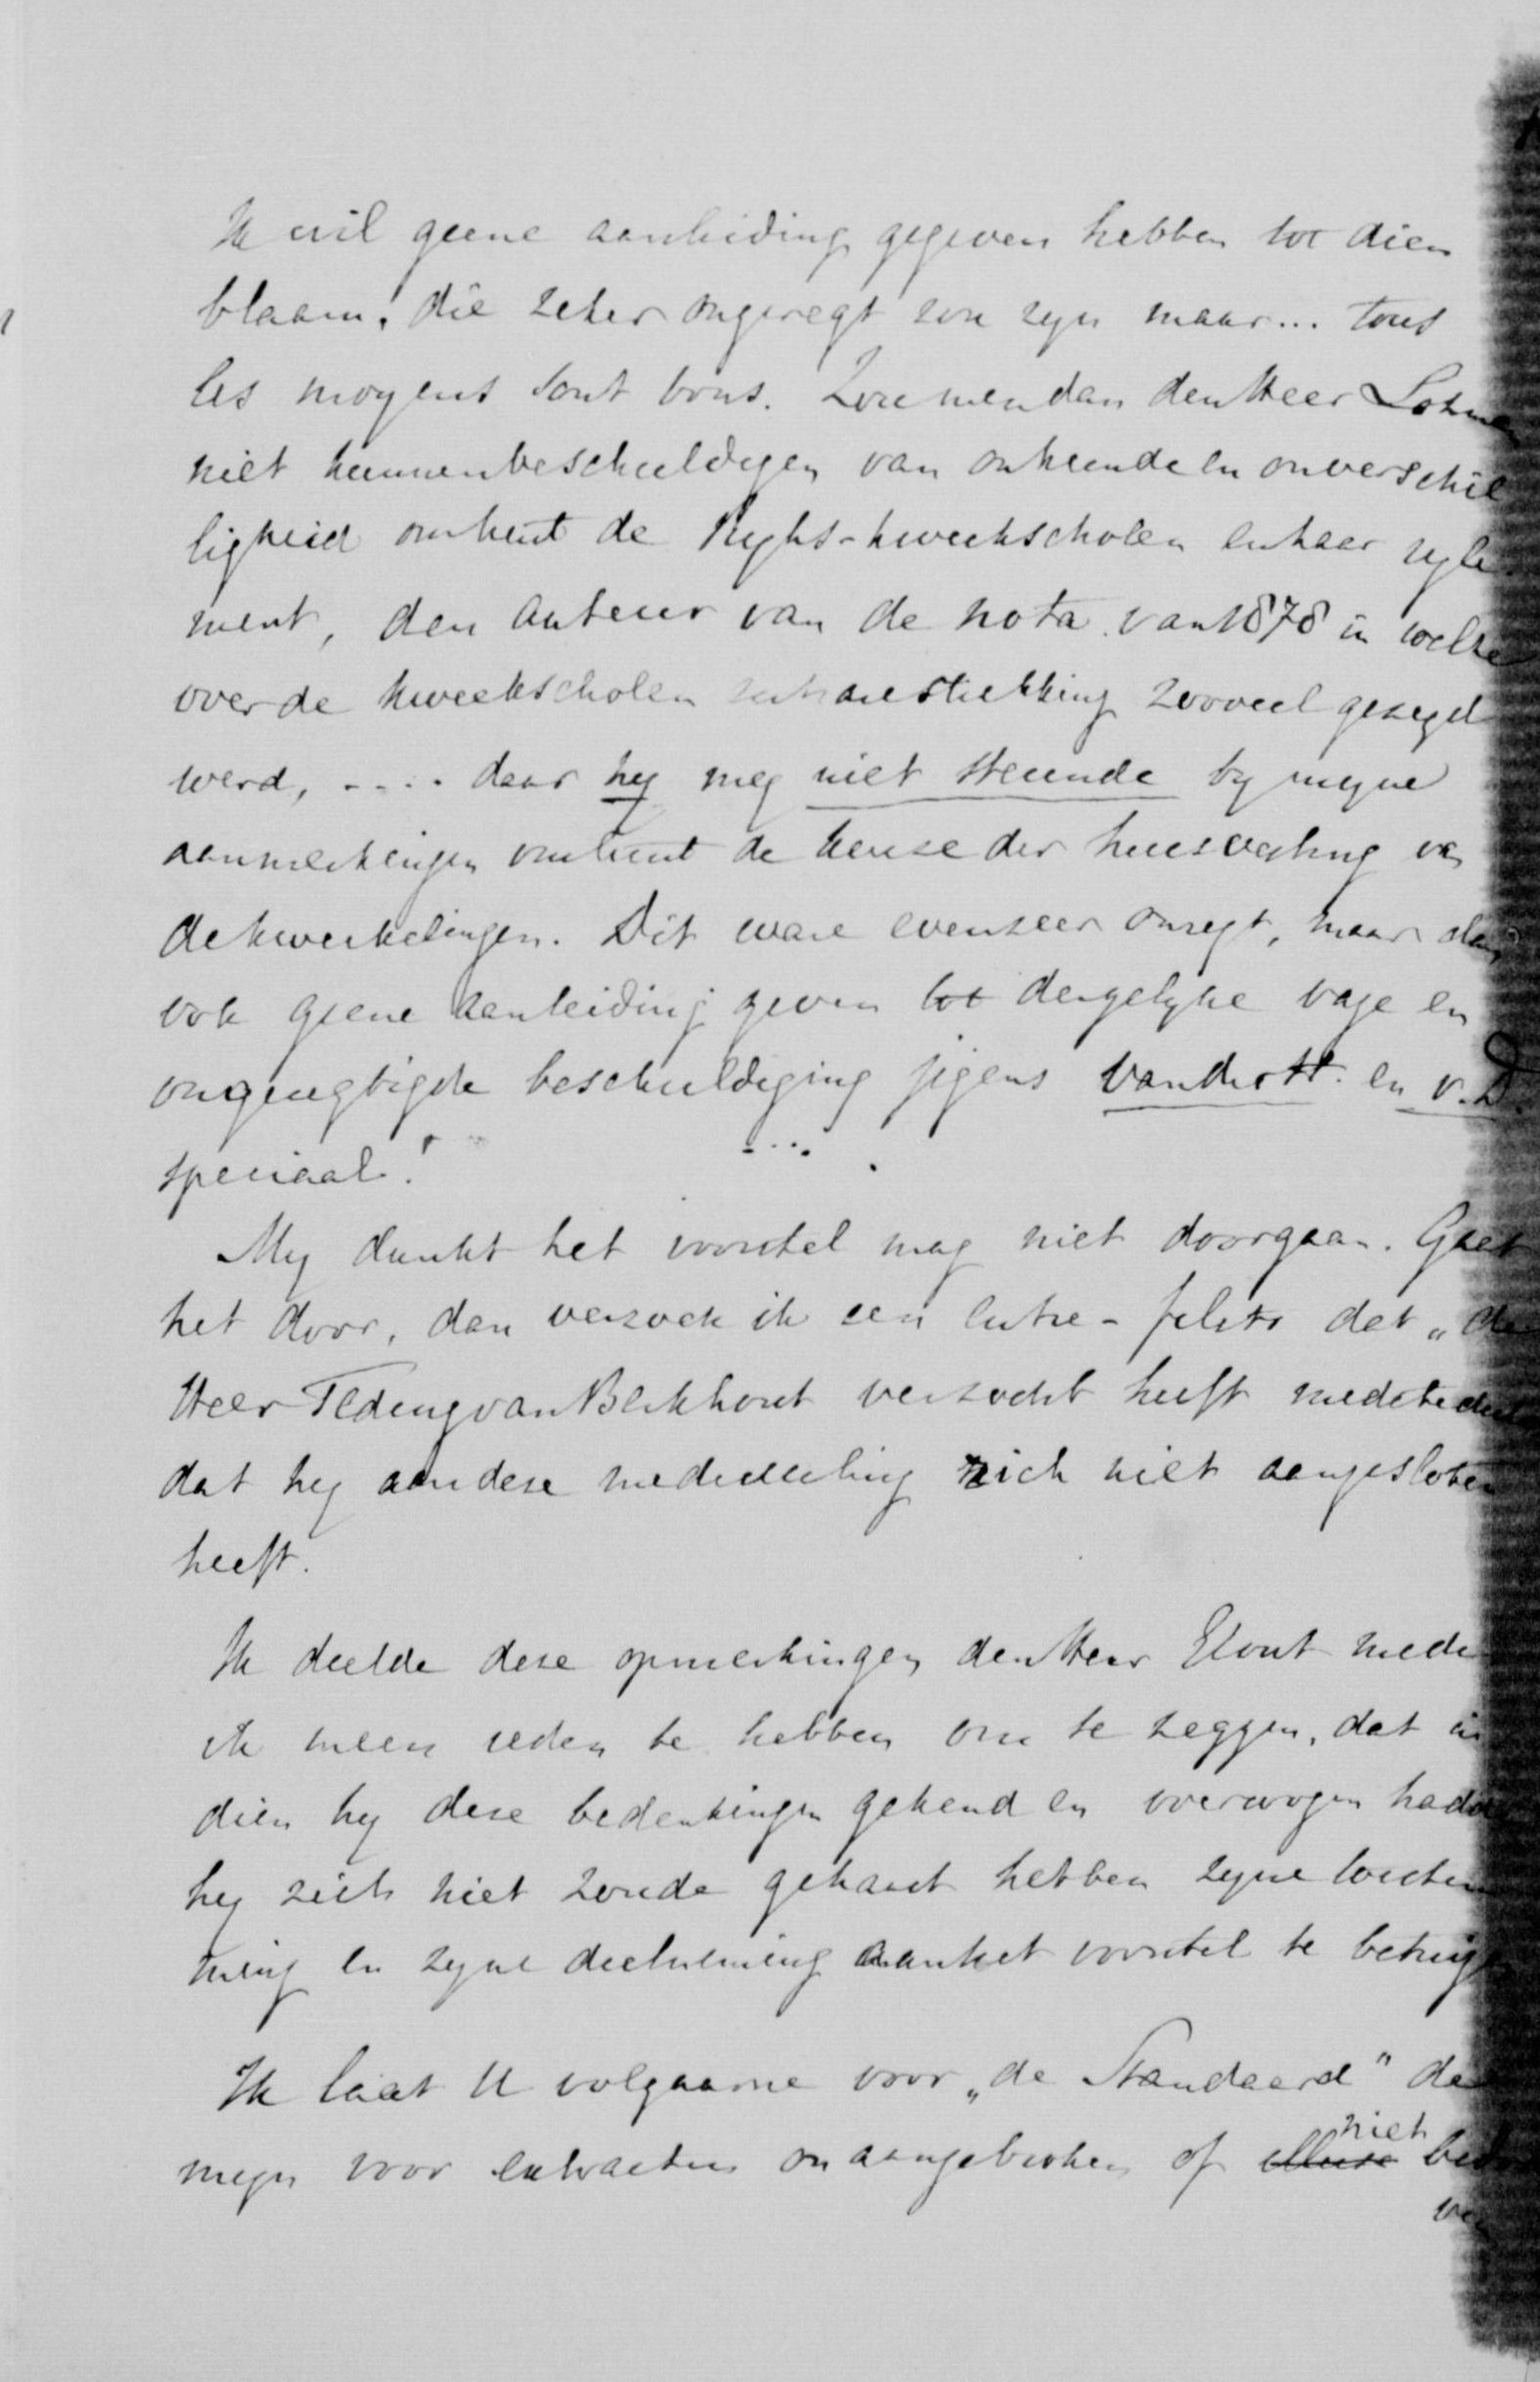 Ik wil geene aanleiding gegeven hebben tot dien
blaam, die zeker ongeregt zou zyn maar... tous
les moyens sont bons. Zou men dan den Heer Lohman
niet kunnen beschuldigen van onkunde en onverschil
ligheid omtrent de Ryks-kweekscholen en haar regle
ment, den auteur van de nota van 1878 in welke
over de kweekscholen en hare strekking zooveel gezegd
werd, .... daar hy my niet steunde by myne
aanmerkingen omtrent de keuze der huisvesting van
de kweekelingen. Dit ware evenzeer onregt, maar
ook geene aanleiding geven tot dergelyke vage en
ongeregtigde beschuldiging jegens van der H. en v. D.
speciaal!
My dunkt het voorstel mag niet doorgaan. Gaat
het door, dan verzoek ik een entre-filets dat „de
Heer Teding van Berkhout verzocht heeft medetedeelen
dat hy aan deze mededeeling zich niet aangesloten
heeft.
Ik deelde deze opmerkingen den Heer Elout mede
ik meen reden te hebben om te zeggen, dat in
dien hy deze bedenkingen gekend en overwogen hadde
hy zich niet zoude gehaast hebben zyne toestem
ming en zyne deelneming aan het voorstel te betuigen
Ik laat U volgaarne voor „de Standaard" de
myn voor extracten onaangebroken of niet